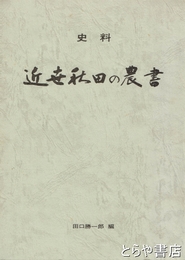 史料
近世秋田の農書
田口勝一郎 編
とらや書房